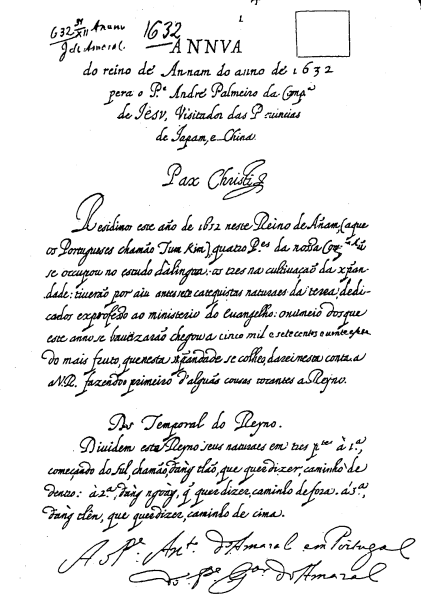 1
1632
632 31/XII Annu
J. de Amaral.
ANNVA
do reino de Annam do anno de 1632
pera o P.e André Palmeiro da Comp.a
de Jesv, Visitador das Prouincias
de Iapam, e China
Pax Christi
Residimos este año de 1632 neste Reino de Añam, (a que
os Portugueses chamão Tum Kim), quatro P.es da nossa Comp.a hũ
se occupou no estudo da lingua: os tres na cultiuação da xpan-
dade: tiuerão por aiu catequistas naturaes da terra, dedi-
cados ex professo ao ministerio do euangelho: o numero dos que
este anno se bautizarão chegou a cinco mil e setecentos e uinte e
do mais fruto, que nesta xpandade se colheo, darei nesta conta a
a V.R. fazendo primeiro d'alguãs cousas tocantes a Reyno.
Do Temporal do Reyno.
Diuidem este Reyno seus naturaes em tres p.tes à 1.a,
começado do sul, chamão, đàng tlão, que quer dizer, caminho de
dentro: à 2.a, đàng ngoày, q̃ quer dizer, caminho de fora. à 3.a,
đàng tlên, que quer dizer, caminho de cima.
Ao P.e Ant.o do Amaral em Portugal
do P.e G.ar do Amaral